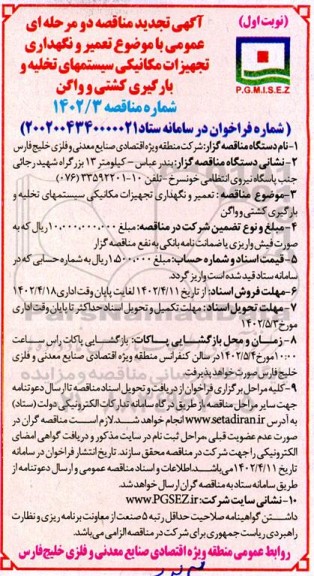 (نوبت اول)
آگهی تجدید مناقصه دو مرحله ای
عمومی با موضوع تعمیر و نگهداری
تجهیزات مکانیکی سیستمهای تخلیه و
بارگیری کشتی و واگن
شماره مناقصه ۱۴۰۲/۳
P.G.M.I.S.E.Z
( شماره فراخوان در سامانه ستاد ۲۰۰۲۰۰۴۳۴۰۰۰۰۰۲۱)
۱-نام دستگاه مناقصه گزار: شرکت منطقه ویژه اقتصادی صنایع معدنی و فلزی خلیج فارس
۲- نشانی دستگاه مناقصه گزار: بندرعباس - کیلومتر ۱۳ بزرگراه شهید رجائی
جنب پاسگاه نیروی انتظامی خونسرخ - تلفن ۱۰-۳۳۵۹۲۲۰۱ (۰۷۶)
۳-موضوع مناقصه : تعمیر و نگهداری تجهیزات مکانیکی سیستمهای تخلیه و
بارگیری کشتی و واگن
۴-مبلغ و نوع تضمین شرکت در مناقصه: مبلغ ۱۰,۰۰۰,۰۰۰,۰۰۰ ریال که به
صورت فیش واریزی یا ضمانت نامه بانکی به نفع مناقصه گزار
۵- قیمت اسناد و شماره حساب: مبلغ ۱,۵۰۰,۰۰۰ ریال به شماره حسابی که در
سامانه ستاد قید شده است واریز گردد.
۶-مهلت فروش اسناد: از تاریخ ۱۴۰۲/۴/۱۱ لغایت پایان وقت اداری ۱۴۰۲/۴/۱۸
۷- مهلت تحویل اسناد: مهلت تکمیل و تحویل اسناد حداکثر تا پایان وقت اداری
مورخ ۱۴۰۲/۵/۳
۸-زمان و محل بازگشایی پاکات: بازگشایی پاکات راس ساعت
۱۰:۰۰ مورخ ۱۴۰۲/۵/۴ در سالن کنفرانس منطقه ویژه اقتصادی صنایع معدنی و فلزی
خلیج فارس صورت خواهد پذیرفت
۹-کلیه مراحل برگزاری فراخوان از دریافت و تحویل اسناد مناقصه تا ارسال دعوتنامه
جهت سایر مراحل مناقصه از طریق درگاه سامانه تدارکات الکترونیکی دولت (ستاد)
به آدرس www.setadiran.ir انجام خواهد شد. لازم است مناقصه گران در
صورت عدم عضویت قبلی، مراحل ثبت نام در سایت مذکور و دریافت گواهی امضای
الکترونیکی را جهت شرکت در مناقصه محقق سازند. تاریخ انتشار فراخوان در سامانه
تاریخ ۱۴۰۲/۴/۱۱ می باشد. اطلاعات و اسناد مناقصه عمومی و ارسال دعوتنامه از
طریق سامانه ستاد به مناقصه گران ارسال خواهد شد.
۱۰-نشانی سایت شرکت: www.PGSEZ.ir
داشتن گواهینامه صلاحیت حداقل رتبه ۵ صنعت از معاونت برنامه ریزی و نظارت
راهبردی ریاست جمهوری برای شرکت در مناقصه الزامی می باشد.
روابط عمومی منطقه ویژه اقتصادی صنایع معدنی و فلزی خلیج فارس